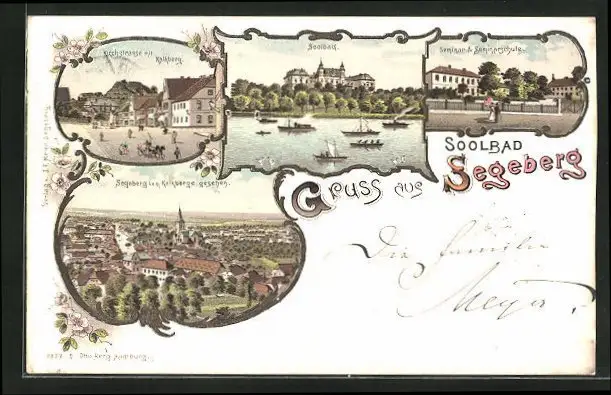 Kirchstrasse mit
Kalkberg.
Soolbad.
Seminar & Seminarschule.
SOOLBAD
Segeberg
Gruss aus
Segeberg vom Kalkberge gesehen.
Die Familie
Meyer.